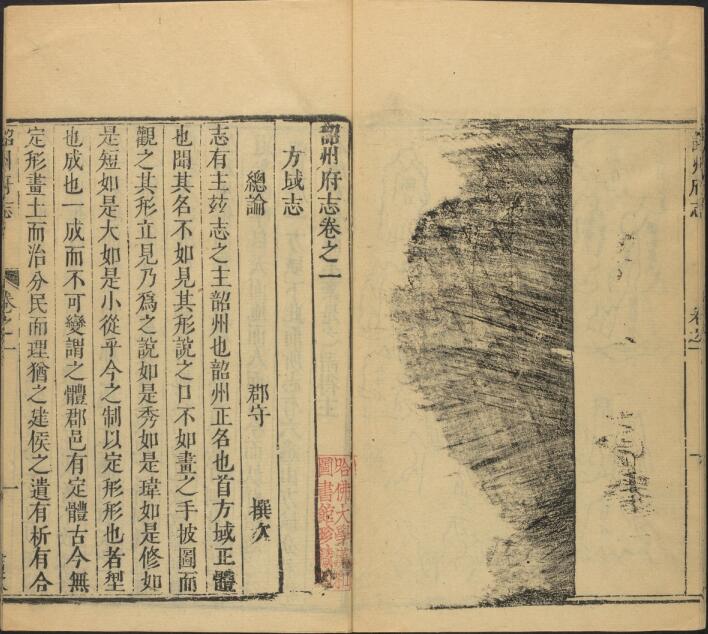 韶州府志
卷之一
韶州府志卷之一
方域志
總論 郡守 撰文
志有主玆志之主韶州也韶州正名也首方域正體
也聞其名不如見其形說之口不如畫之手披圖而
觀之其形立見乃爲之說如是秀如是瑋如是修如
是短如是大如是小從乎今之制以定形形也者型
也成也一成而不可變謂之體郡邑有定體古今無
定形畫土而治分民而理猶之建侯之遺有析有合
韶州府志
卷之一
一
哈佛大學漢和
圖書館珍藏